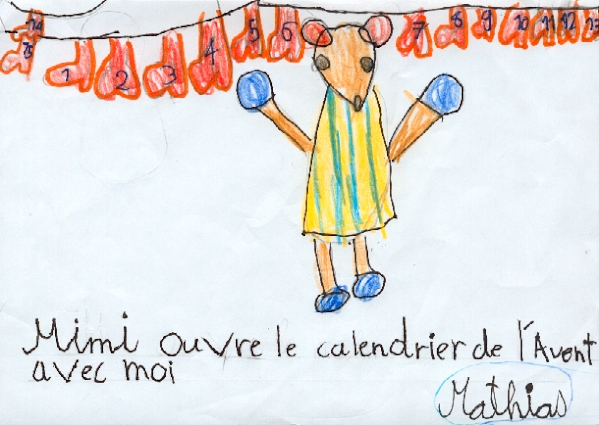 24
25 1 2 3 4 5 6 7 8 9 10 11 12 23
Mimi ouvre le calendrier de l'Avent
avec moi
Mathias